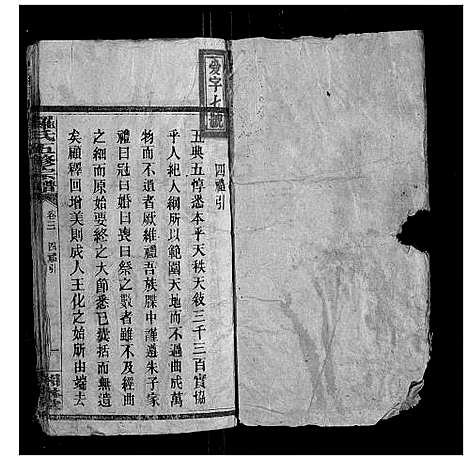 愛字七號
四禮引
五典五惇悉本乎天秩天敘三千三百實協
乎人紀人綱所以範圍天地而不過曲成萬
物而不遺者厥維禮吾族牒中謹遵朱子家
禮曰冠曰婚曰喪曰祭之數者雖不及經曲
之細而原始要終之大節悉已囊括而無遺
矣顧釋回增美則成人王化之始所由端去
羅氏五修宗譜
卷二
四禮引
一